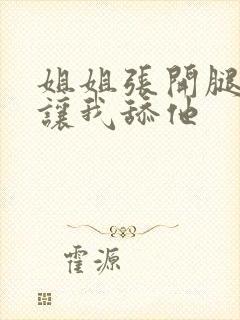 姐姐張開腿
讓我舔他
霍源